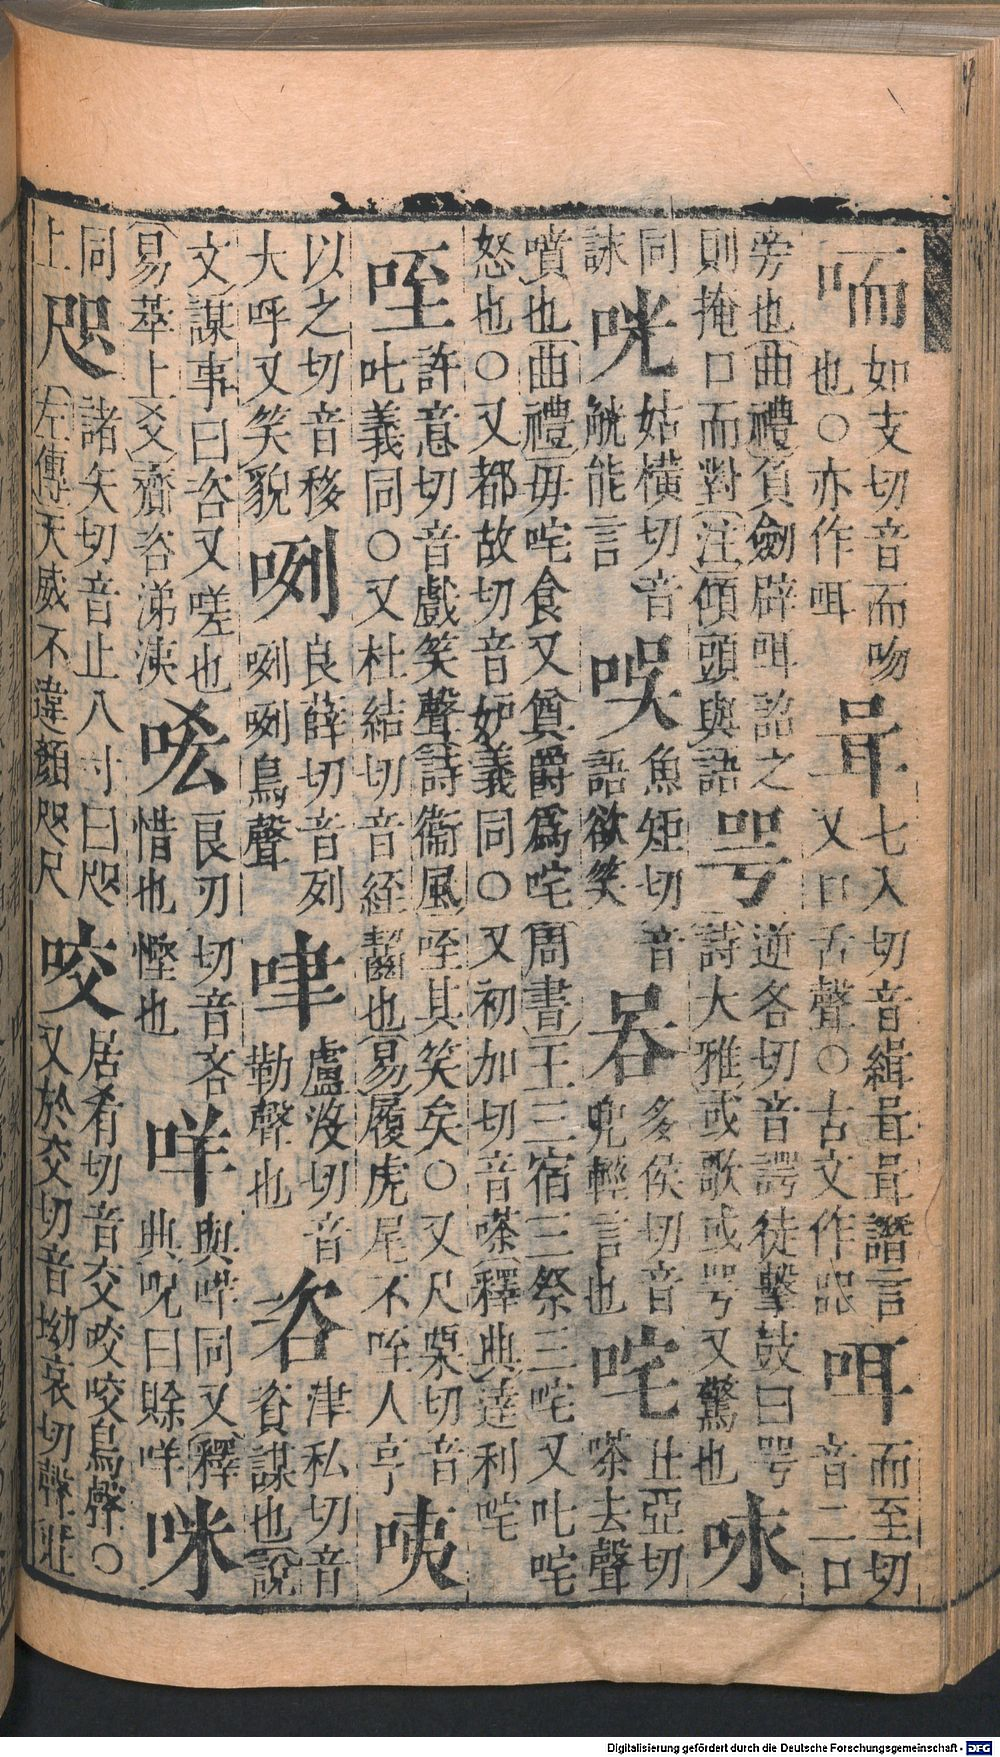 唡如支切音而吻也○亦作咡咠七入切音緝咠咠譖言又口舌聲○古文作咡而至切音二口
旁也(曲禮)負劒辟咡詔之則掩口而對(注)傾頭與語咢逆各切音諤徒擊鼓曰咢(詩大雅)或歌或咢又驚也咏
同詠咣姑橫切音觥能言魚矩切音語欲笑多侯切音兜輕言也咤止亞切嗏去聲
噴也(曲禮)毋咤食又奠爵爲咤(周書)王三宿三祭三咤又叱咤怒也○又都故切音妒義同○又初加切音嗏(釋典)達利咤
咥許意切音戲笑聲(詩衞風)咥其笑矣○又尺栗切音叱義同○又杜結切音絰齧也(易)履虎尾不咥人亨咦
以之切音移大呼又笑貌咧良薛切音列咧咧鳥聲盧汝切音勒聲也咨津私切音資謀也(說
文)謀事曰咨又嗟也(易萃上爻)齎咨涕洟良刃切音吝惜也慳也咩與哶同又(釋典)呪曰賖咩咪
同上咫諸矢切音止八寸曰咫(左傳)天威不違顏咫尺咬居肴切音交咬咬鳥聲○又於交切音坳哀切聲莊
Digitalisierung gefördert durch die Deutsche Forschungsgemeinschaft - DFG